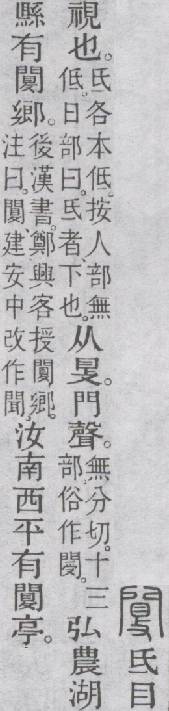 氐目
視也。氐各本低。按人部無低。日部曰。氐者下也。从𥄎。門聲。無分切。十三部。俗作閿。弘農湖
縣有闅鄉。後漢書。鄭興客授闅鄉。注曰。闅建安中改作聞。汝南西平有闅亭。